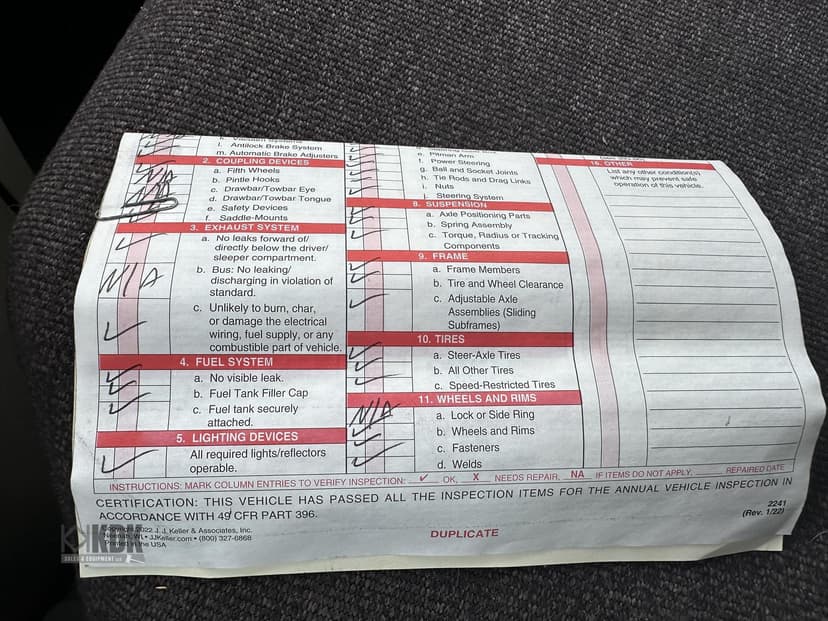 l. Antilock Brake System
m. Automatic Brake Adjusters
2. COUPLING DEVICES
a. Fifth Wheels
b. Pintle Hooks
c. Drawbar/Towbar Eye
d. Drawbar/Towbar Tongue
e. Safety Devices
f. Saddle-Mounts
N/A
3. EXHAUST SYSTEM
a. No leaks forward of/
directly below the driver/
sleeper compartment.
N/A
b. Bus: No leaking/
discharging in violation of
standard.
c. Unlikely to burn, char,
or damage the electrical
wiring, fuel supply, or any
combustible part of vehicle.
4. FUEL SYSTEM
a. No visible leak.
b. Fuel Tank Filler Cap
c. Fuel tank securely
attached.
5. LIGHTING DEVICES
All required lights/reflectors
operable.
e. Pitman Arm
f. Power Steering
g. Ball and Socket Joints
h. Tie Rods and Drag Links
i. Nuts
j. Steering System
8. SUSPENSION
a. Axle Positioning Parts
b. Spring Assembly
c. Torque, Radius or Tracking
Components
9. FRAME
a. Frame Members
b. Tire and Wheel Clearance
c. Adjustable Axle
Assemblies (Sliding
Subframes)
10. TIRES
a. Steer-Axle Tires
b. All Other Tires
c. Speed-Restricted Tires
11. WHEELS AND RIMS
N/A
a. Lock or Side Ring
b. Wheels and Rims
c. Fasteners
d. Welds
15. OTHER
List any other condition(s)
which may prevent safe
operation of this vehicle.
INSTRUCTIONS: MARK COLUMN ENTRIES TO VERIFY INSPECTION: ✓ OK, X NEEDS REPAIR, NA IF ITEMS DO NOT APPLY, REPAIRED DATE
CERTIFICATION: THIS VEHICLE HAS PASSED ALL THE INSPECTION ITEMS FOR THE ANNUAL VEHICLE INSPECTION IN
ACCORDANCE WITH 49 CFR PART 396.
Copyright 2022 J. J. Keller & Associates, Inc.
Neenah, WI • JJKeller.com • (800) 327-6868
Printed in the USA
DUPLICATE
2241
(Rev. 1/22)
KDK
SALES & EQUIPMENT LLC